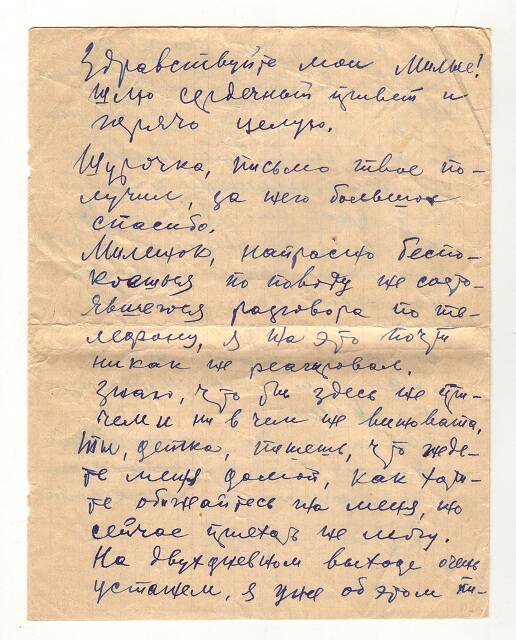 Здравствуйте мои Милые!
Шлю сердечный привет и
горячо целую.
Шурочка, письмо твое по-
лучил, за него большое
спасибо.
Миленькою, напрасно беспо-
коишься по поводу не состо-
явшегося разговора по те-
лефону, я на это почти
никак не реагировал.
Знаю, что ты здесь не при-
чем и ни в чем не виновата,
Ты, детка, пишешь, что жде-
те меня домой, как хоти-
те обижайтесь на меня, но
сейчас приехать не могу.
На двухдневном выходе очень
устаем, я уже об этом пи-